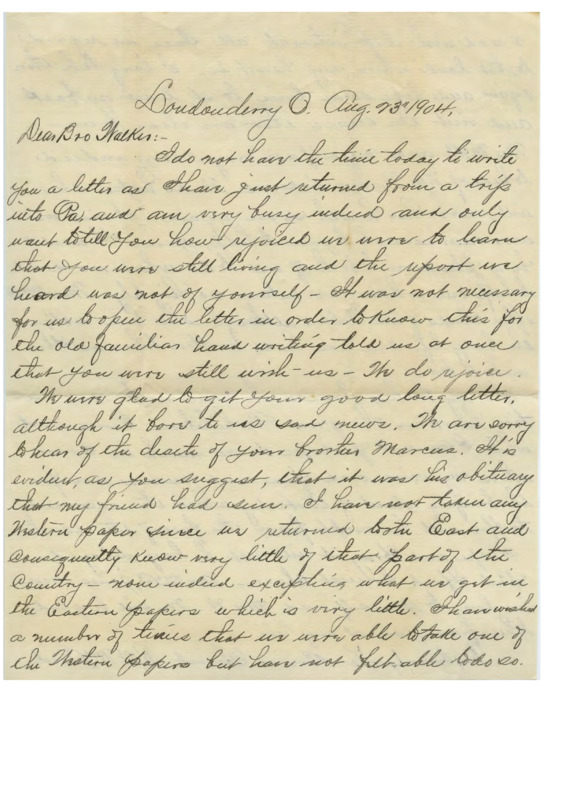 Londonderry O. Aug. 23d 1904.
Dear Bro Walker:-
I do not have the time today to write
you a letter as I have just returned from a trip
into Pa. and am very busy indeed and only
want to tell you how rejoiced we were to learn
that you were still living and the report we
heard was not of yourself - It was not necessary
for us to open the letter in order to know this for
the old familiar hand writing told us at once
that you were still with us - We do rejoice.
We were glad to git your good long letter,
although it bore to us sad news. We are sorry
to hear of the death of your brother Marcus. It is
evident, as you suggest, that it was his obituary
that my friend had seen. I have not taken any
Western paper since we returned to the East and
consequently know very little of that part of the
Country - none indeed excepting what we get in
the Eastern papers which is very little. I have wished
a number of times that we were able to take one of
the Western papers but have not felt able to do so.